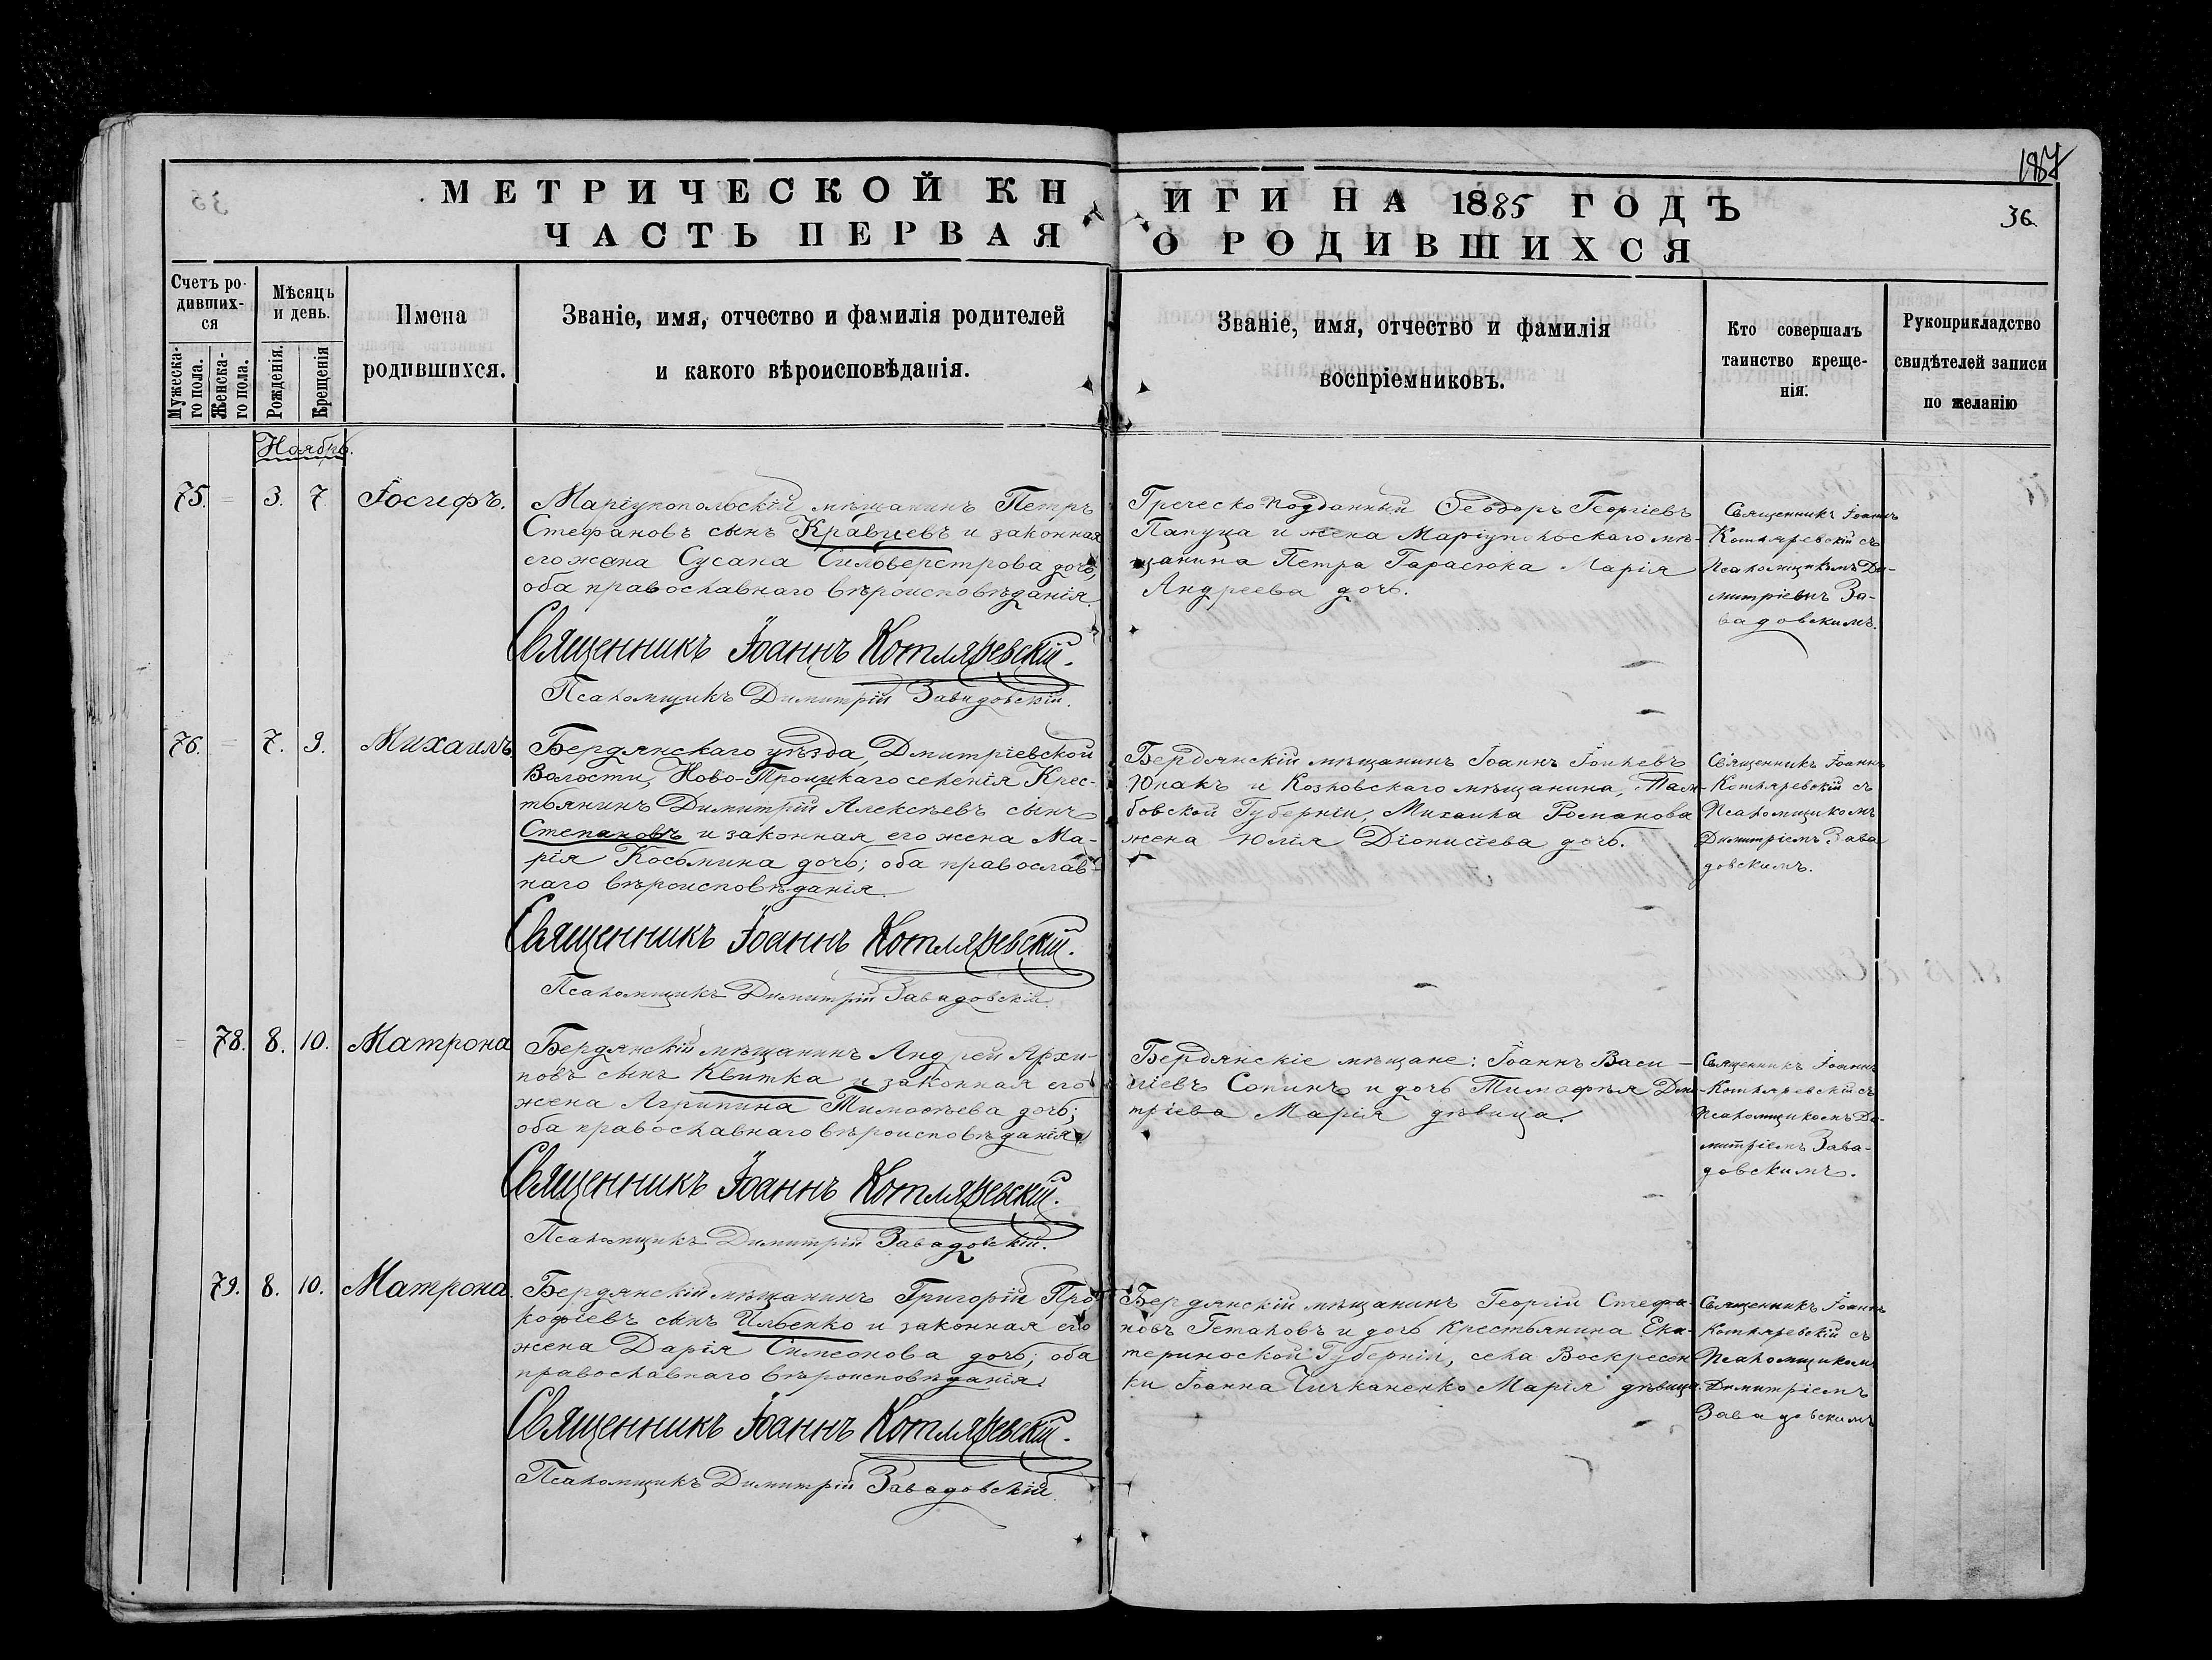 187
МЕТРИЧЕСКОЙ КНИГИ НА 1885 ГОДѢ
36
ЧАСТЬ ПЕРВАЯ О РОДИВШИХСЯ
Счетъ родившихся
Мужескаго пола.
Женскаго пола.
Мѣсяцъ и день.
Рожденія.
Крещенія
Имена
родившихся.
Званіе, имя, отчество и фамилія родителей
и какого вѣроисповѣданія.
Званіе, имя, отчество и фамилія
воспріемниковъ.
Кто совершалъ
таинство креще-
нія.
Рукоприкладство
свидѣтелей записи
по желанію
Ноябрь.
75. 3. 7 Іосифъ.
Маріупопольскій мѣщанинъ Петръ
Стефановъ сынъ Кравцевъ и законная
его жена Сусана Сильверстрова дочь,
оба православнаго вѣроисповѣданія.
Священникъ Іоаннъ Котляревскій.
Псаломщикъ Димитрій Завадовскій.
Греческо-подданный Ѳеодоръ Георгіевъ
Папуца и жена Маріупольскаго мѣ-
щанина Петра Гарасюка Марія
Андреева дочь.
Священникъ Іоаннъ
Котляревскій съ
Псаломщикомъ Ди-
митріемъ За-
вадовскимъ.
76. 7. 9. Михаилъ
Бердянскаго уѣзда, Дмитріевской
Волости, Ново-Троицкаго селенія Крес-
тьянинъ Димитрій Алексѣевъ сынъ
Степановъ и законная его жена Ма-
рія Косьмина дочь; оба православ-
наго вѣроисповѣданія.
Священникъ Іоаннъ Котляревскій.
Псаломщикъ Димитрій Завадовскій.
Бердянскій мѣщанинъ Іоаннъ Іоилевъ
Юнакъ и Козловскаго мѣщанина, Там-
бовской Губерніи, Михаила Романова
жена Юлія Діонисіева дочь.
Священникъ Іоаннъ
Котляревскій съ
Псаломщикомъ
Димитріемъ Зава
довскимъ.
78. 8. 10. Матрона
Бердянскій мѣщанинъ Андрей Архи-
повъ сынъ Квитка и законная его
жена Агрипина Тимоѳѣева дочь;
оба православнаго вѣроисповѣданія.
Священникъ Іоаннъ Котляревскій.
Псаломщикъ Димитрій Завадовскій.
Бердянскіе мѣщане: Іоаннъ Васи-
ліевъ Сопинъ и дочь Тимофѣя Дми-
тріева Марія дѣвица.
Священникъ Іоаннъ
Котляревскій съ
Псаломщикомъ Ди-
митріемъ Зава-
довскимъ.
79. 8. 10. Матрона.
Бердянскій мѣщанинъ Григорій Про
кофіевъ сынъ Ильенко и законная его
жена Дарія Симеонова дочь; оба
православнаго вѣроисповѣданія.
Священникъ Іоаннъ Котляревскій.
Псаломщикъ Димитрій Завадовскій
Бердянскій мѣщанинъ Георгій Стефа-
новъ и дочь Крестьянина Ека-
териноской Губерніи, села Воскресен-
ки Іоанна Чичканенко Марія дѣвица.
Священникъ Іоаннъ
Котляревскій съ
Псаломщикомъ
Димитріемъ
Завадовскимъ